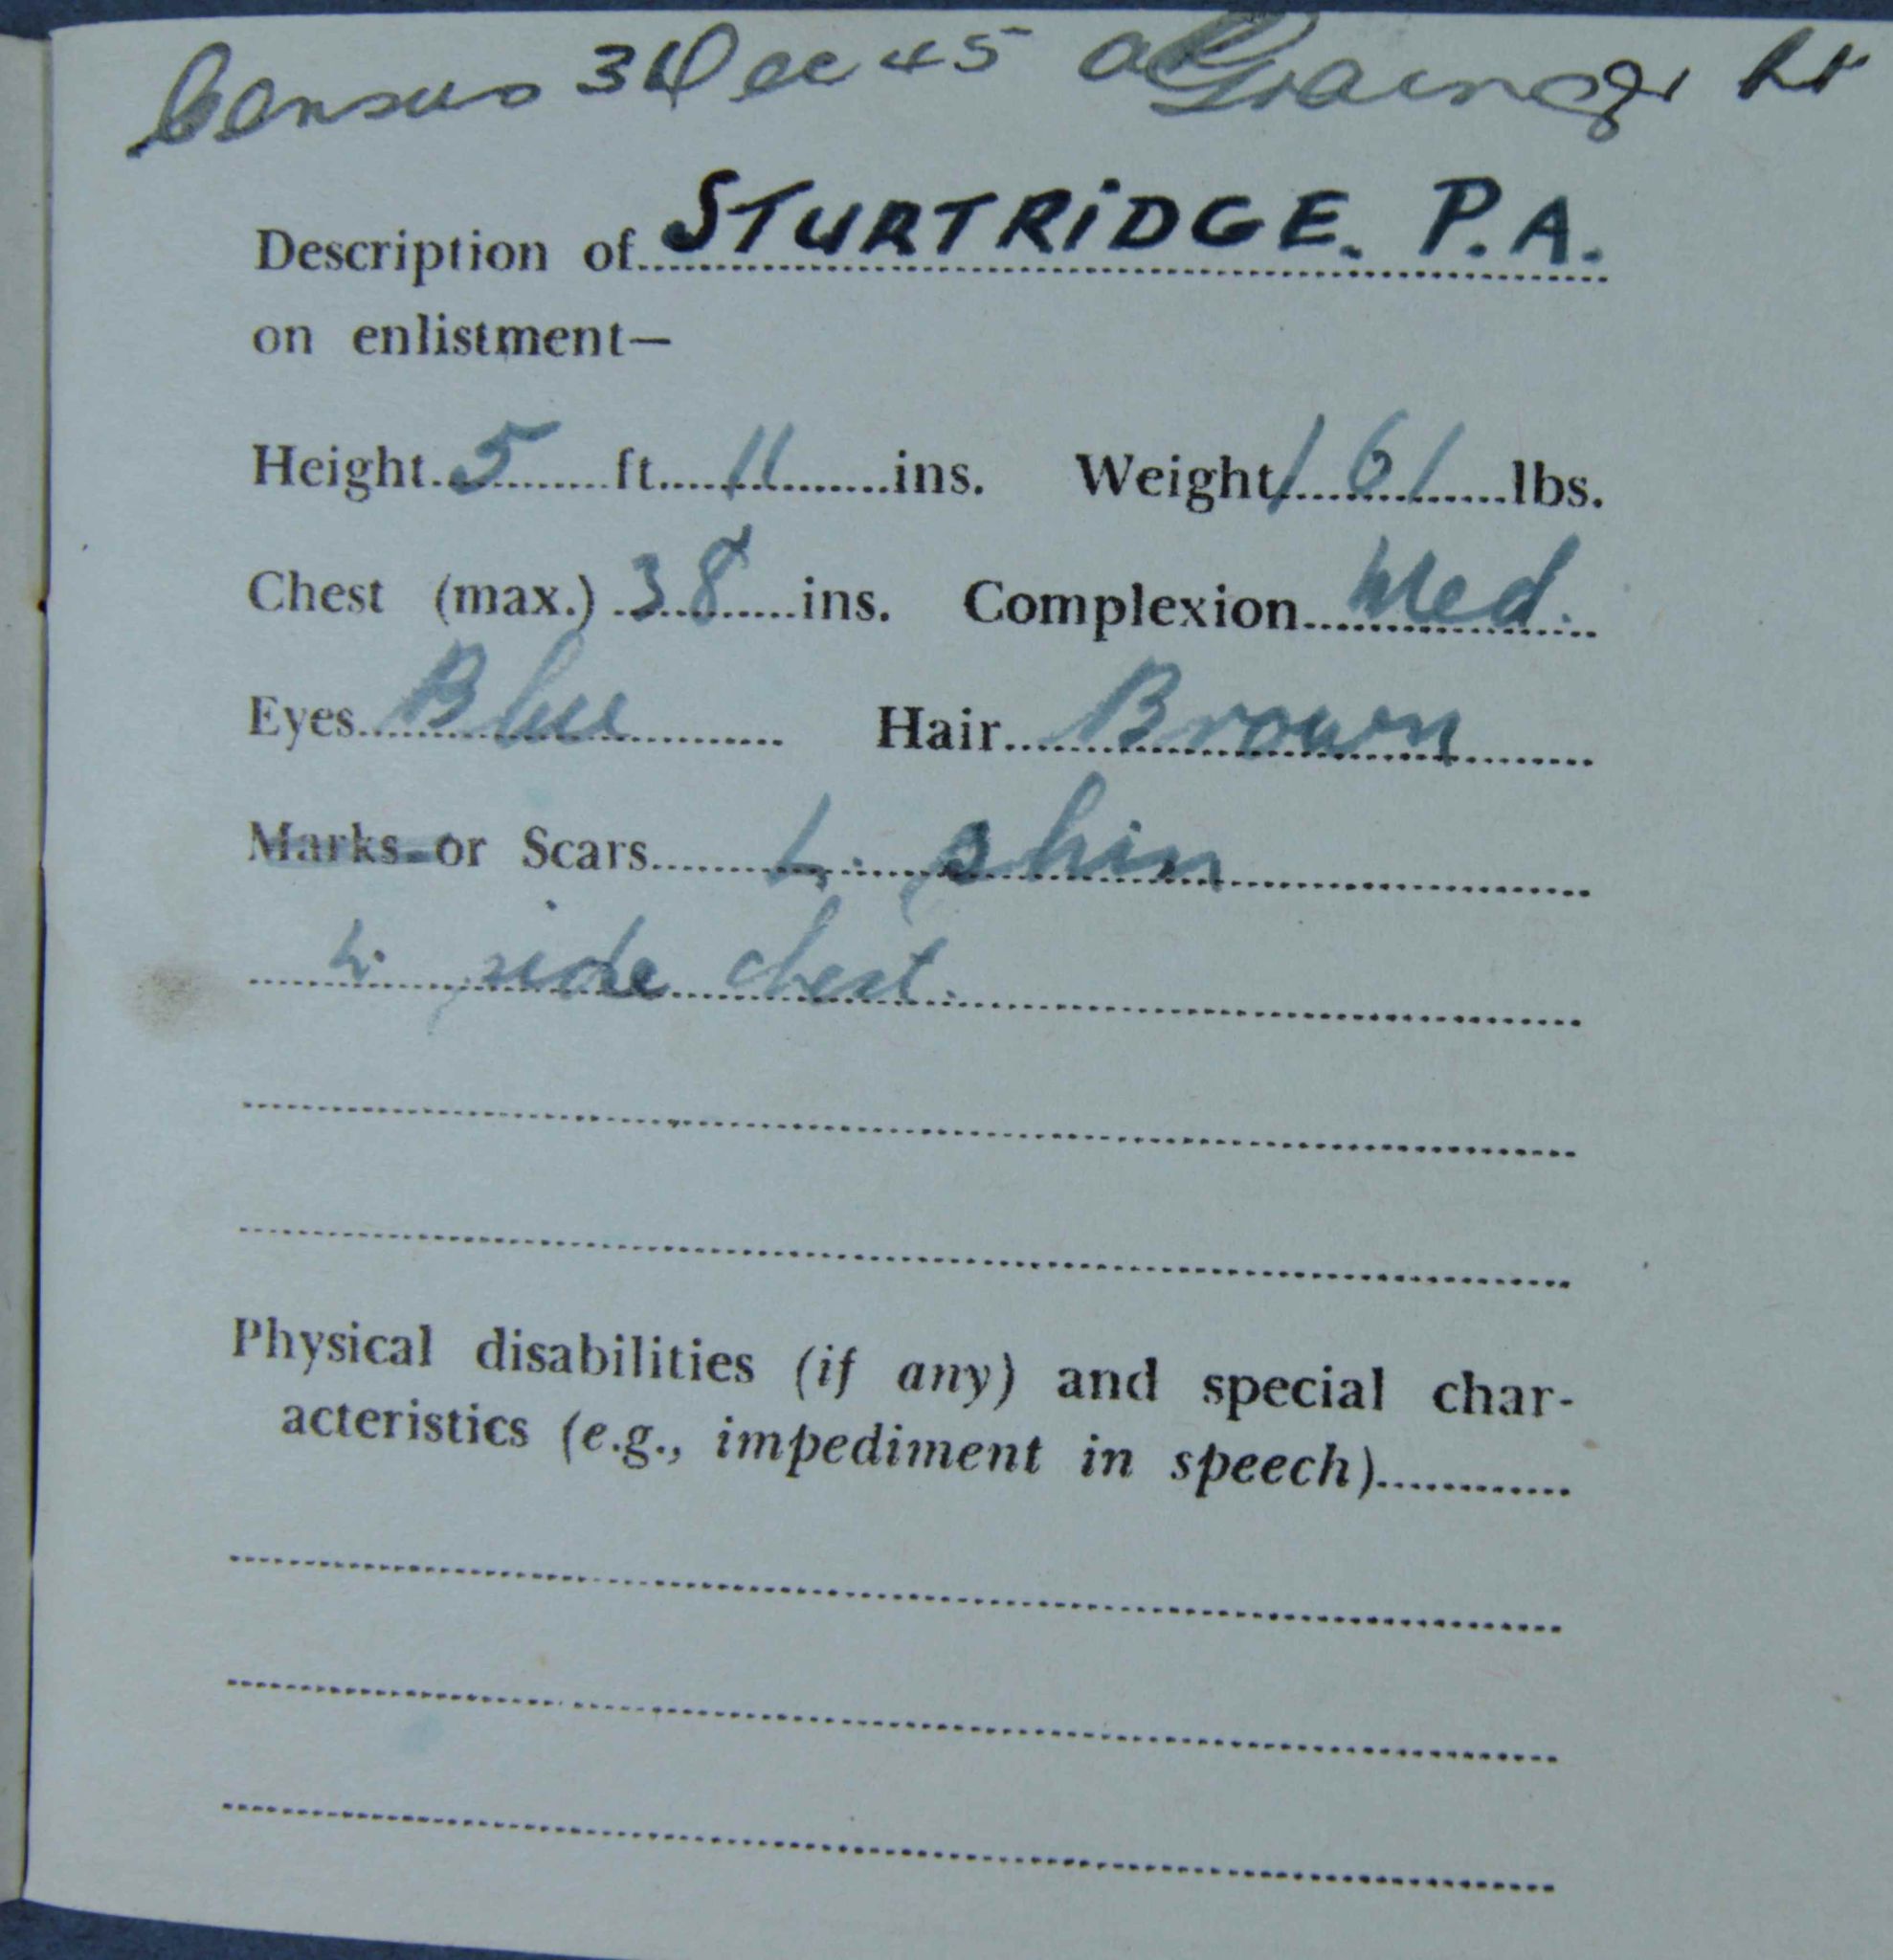 Census 3 Dec 45 Grainger Lt
Description of STURTRIDGE. P.A.
on enlistment—
Height 5 ft. 11 ins. Weight 161 lbs.
Chest (max.) 38 ins. Complexion Med.
Eyes Blue Hair Brown
Marks or Scars L. shin
L. side chest.
Physical disabilities (if any) and special char-
acteristics (e.g., impediment in speech)